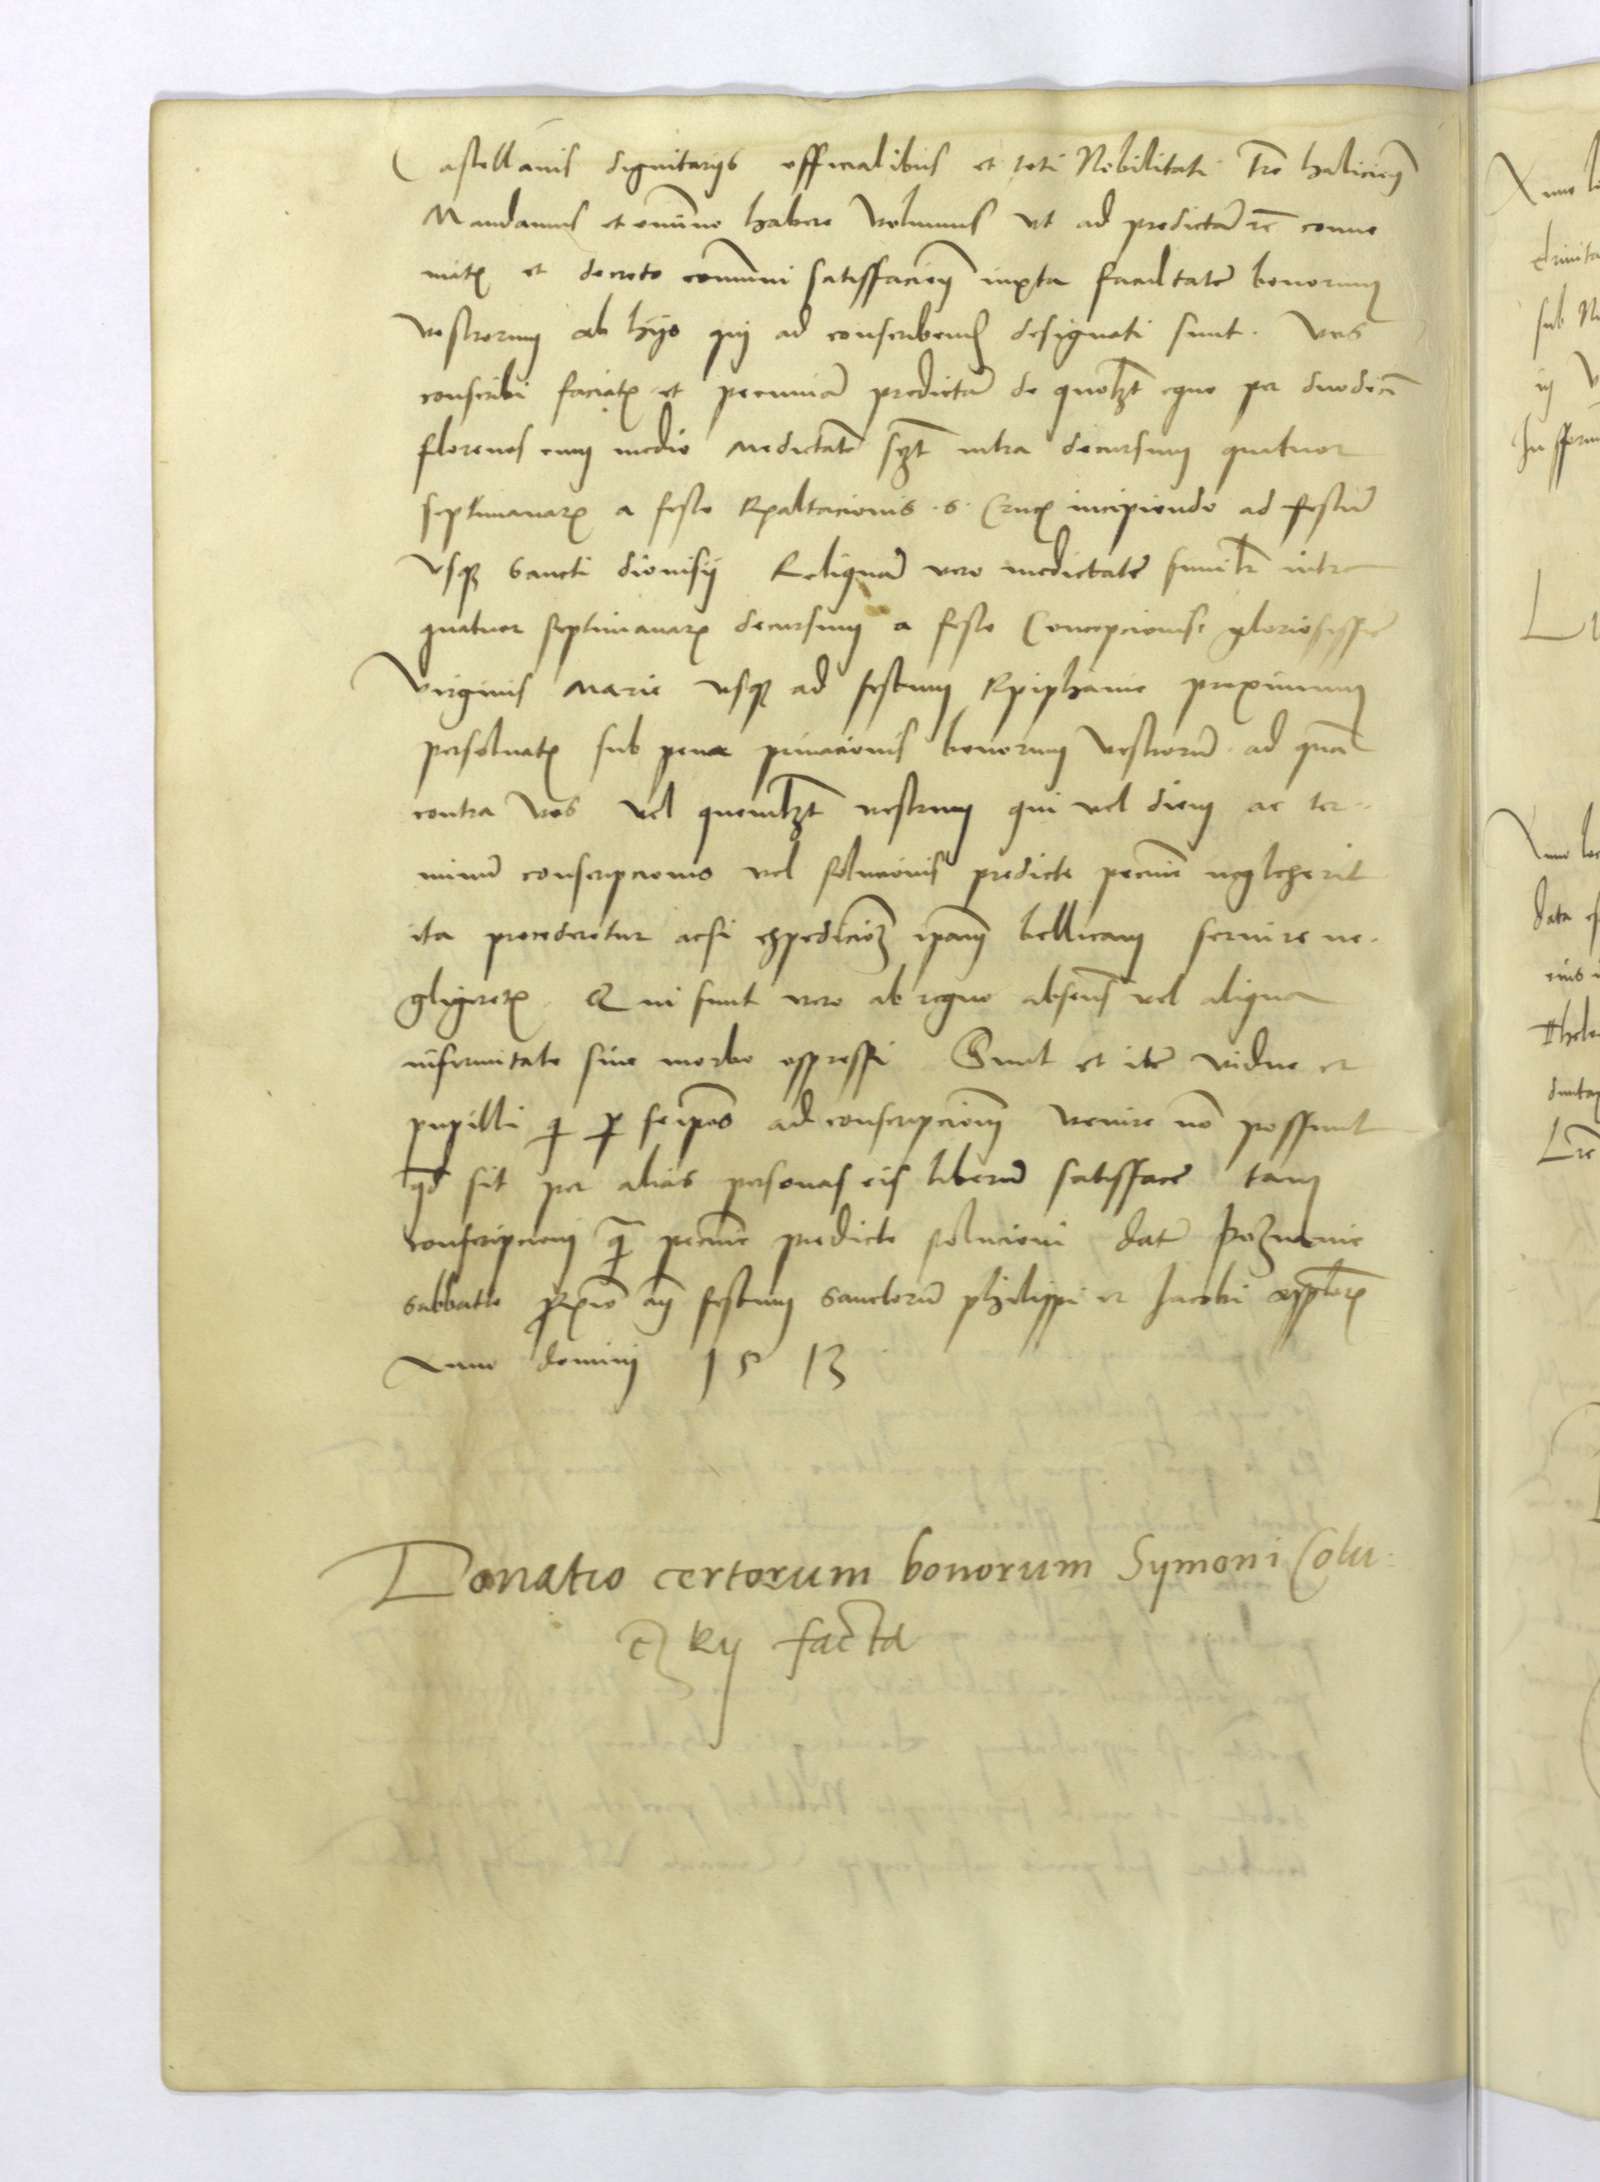 Castellanis dignitarijs officialibus et toti Nobilitati Tre halicien̄
Mandamus et omnino habere volumus vt ad predictā rē conue
niatȝ et decreto com̄uni satisfacien̄ iuxta facultatē bonorum
vestrorum ab hijs qui ad conscribend̄ designati sunt. vos
conscribi faciatȝ et pecuniā predictā de quolȝt equo per duodecī
florenos cum medio medietatē scȝt intra decursum quatuor
septimanarȝ a festo Exaltacionis .S. Crucȝ incipiendo ad festū
vsqȝ Sancti dionisij Reliquā vero medietatē similr̄ intra
quatuor septimanarȝ decursum a festo Concepcionis gloriosissīe
virginis Marie vsqȝ ad festum Epiphanie proximum
persoluatȝ sub pena priuacionis bonorum vestrorū ad quā
contra vos vel quemlȝt vestrum qui vel diem ac ter-
minū conscripcionis vel solucionis predicte pecunīe neglexerit
ita procederetur acsi expedicionȝ ip̄am bellicam seruire ne-
gligeretȝ. Qui sunt vero ab regno absens̄ vel aliqua
infirmitate siue morbo oppressi Sunt et itē vidue et
pupilli qi p seip̄os ad conscripcionē venire nō possunt
qd̄ sit per alias personas eis liberū satisfacē tam
conscripcioni qȝ pecunīe predicte solucioni datē Poznanie
Sabbatho pxīo an̄ festum Sanctorū philippi et Jacobi app̄lorȝ
Anno domini 1513
Donatio certorum bonorum Symoni Colu-
cȝky facta